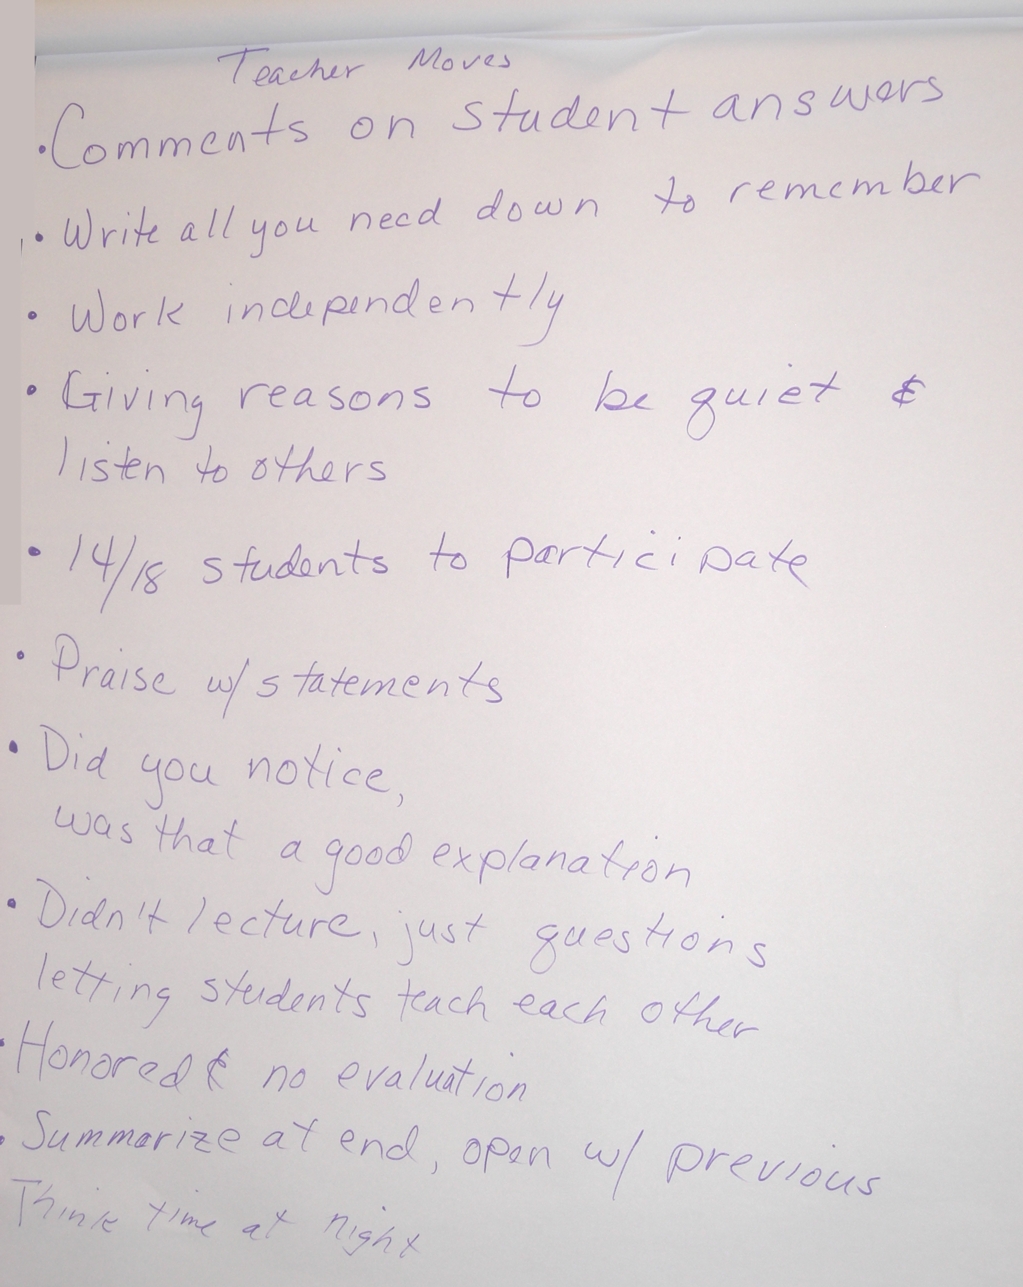 Teacher Moves
• Comments on student answers
• Write all you need down to remember
• Work independently
• Giving reasons to be quiet &
listen to others
• 14/18 students to participate
• Praise w/ statements
• Did you notice,
was that a good explanation
• Didn't lecture, just questions
letting students teach each other
• Honored & no evaluation
• Summarize at end, open w/ previous
Think time at night